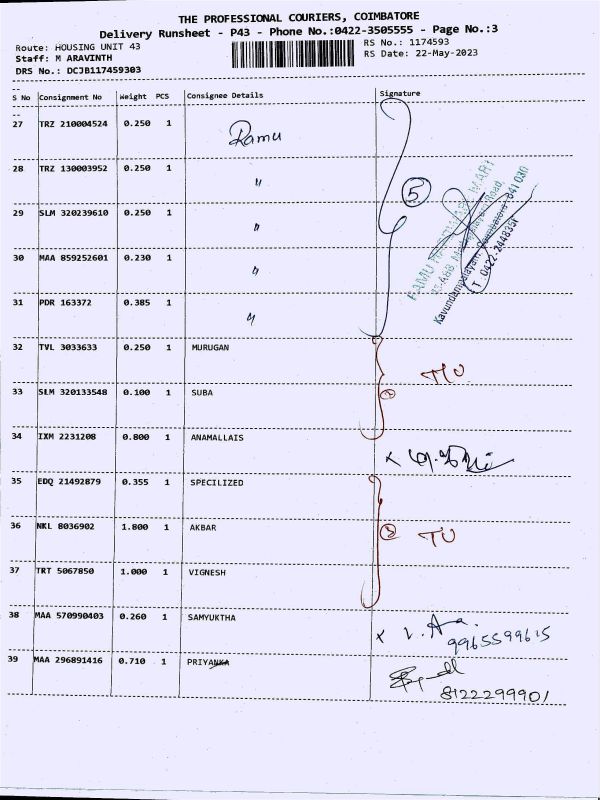 THE PROFESSIONAL COURIERS, COIMBATORE
Delivery Runsheet - P43 - Phone No.:0422-3505555 - Page No.:3
Route: HOUSING UNIT 43
RS No.: 1174593
Staff: M ARAVINTH
RS Date: 22-May-2023
DRS No.: DCJB117459303
--
S No Consignment No Weight PCS Consignee Details Signature
--
27 TRZ 210004524 0.250 1 Ramu
28 TRZ 130003952 0.250 1 "
29 SLM 320239610 0.250 1 "
30 MAA 859252601 0.230 1 "
31 PDR 163372 0.385 1 "
5
T : 0422-2448351
32 TVL 3033633 0.250 1 MURUGAN
33 SLM 320133548 0.100 1 SUBA
34 IXM 2231208 0.800 1 ANAMALLAIS
35 EDQ 21492879 0.355 1 SPECILIZED
36 NKL 8036902 1.800 1 AKBAR 3 TU
37 TRT 5067850 1.000 1 VIGNESH
38 MAA 570990403 0.260 1 SAMYUKTHA
9965599615
39 MAA 296891416 0.710 1 PRIYANKA
8122299901